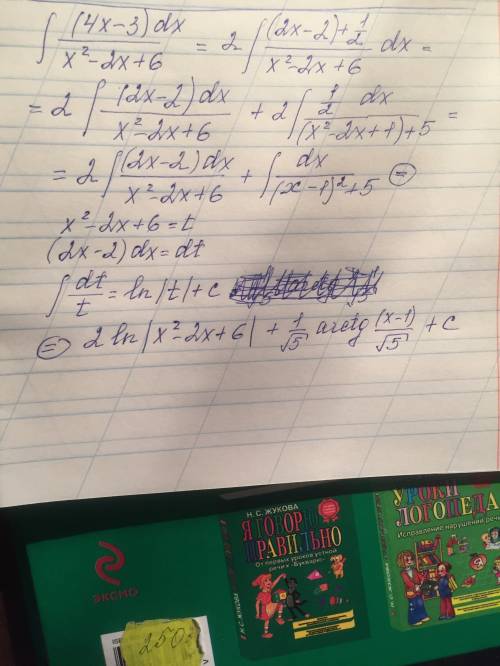 ∫ (4x-3)dx / x²-2x+6 = 2∫ (2x-2)+1/2 / x²-2x+6 dx =
= 2∫ (2x-2)dx / x²-2x+6 + 2∫ 1/2 dx / (x²-2x+1)+5 =
= 2∫ (2x-2)dx / x²-2x+6 + ∫ dx / (x-1)²+5 ⊜
x²-2x+6=t
(2x-2)dx=dt
∫ dt/t = ln|t|+c
⊜ 2 ln|x²-2x+6| + 1/√5 arctg (x-1)/√5 + c
Н. С. ЖУКОВА
Я ГОВОРЮ
ПРАВИЛЬНО
От первых уроков устной
речи к «Букварю»
Н. С. ЖУКОВА
УРОКИ
ЛОГОПЕДА
Исправление нарушений речи
ЭКСМО
250